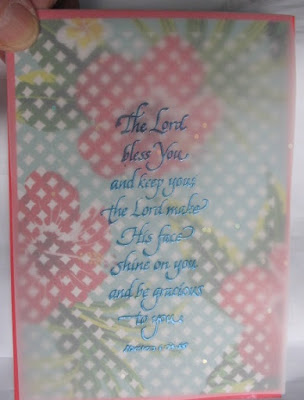 The Lord
bless You
and keep you;
the Lord make
His face
shine on you
and be gracious
to you.